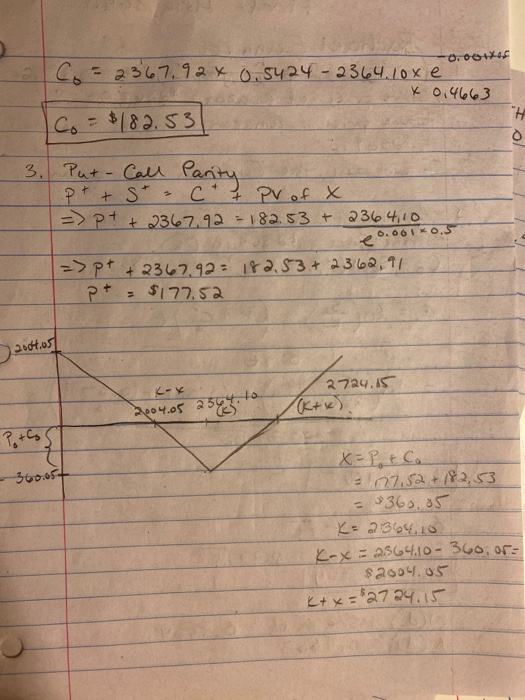 C₀ = 2367.92 x 0.5424 - 2364.10 x e^-0.001x0.5
x 0.4663
C₀ = $182.53
3. Put - Call Parity
P^t + S^t = C^t + PV of X
=> P^t + 2367.92 = 182.53 + 2364.10
e^0.001x0.5
=> P^t + 2367.92 = 182.53 + 2362.91
P^t = $177.52
2004.05
K-x
2724.15
2004.05 2364.10
(K) (K+x)
P₀+C₀
- 360.05
X = P₀ + C₀
= 177.52 + 182.53
= $360.05
K = 2364.10
K-x = 2364.10 - 360.05 =
$2004.05
K+x = $2724.15